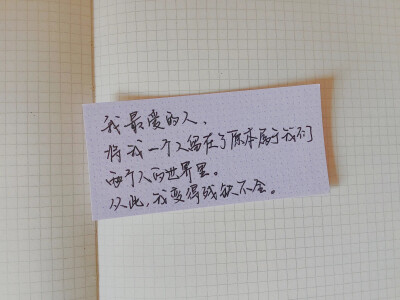 我最爱的人、
将我一个人留在了原本属于我们
两个人的世界里。
从此,我变得残缺不全。